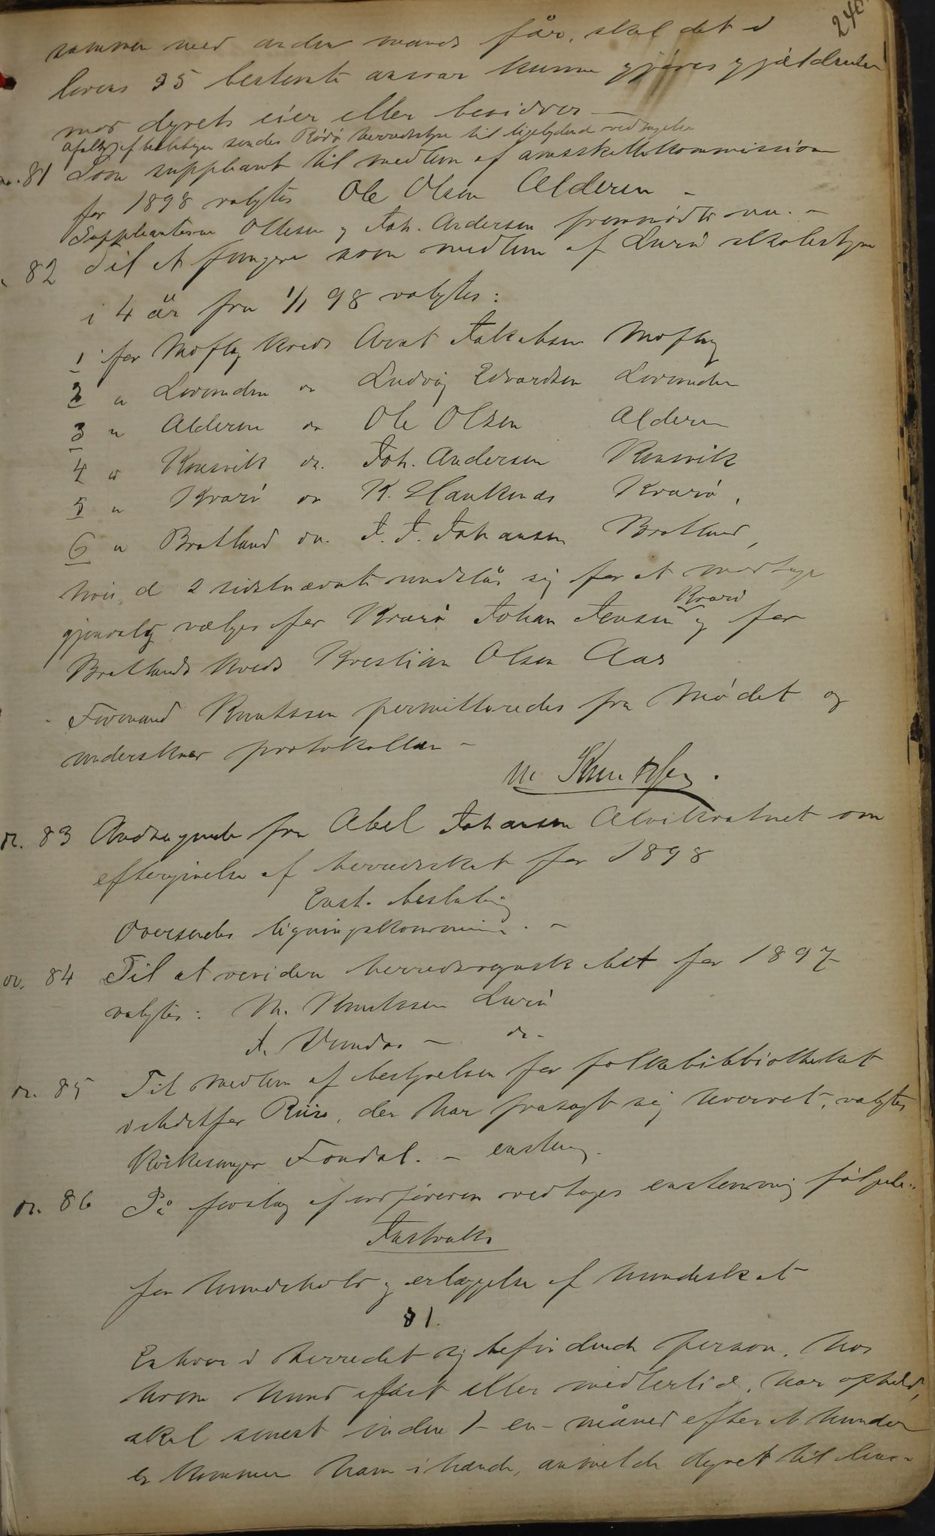 240
sammen med anden mands får, skal det i
lovens § 5 bestemte ansvar kunne gjøres gjældende
mod dyrets eier eller besidder —
sendes Rødø herredsstyre til ligelydende vedtagelse
no. 81 Som suppleant til medlem af amtsskattekommission
for 1898 valgtes Ole Olsen Alderen —
Suppleanterne Olsen og Joh. Andersen fremmødte nu. —
82 Til at fungere som medlem af Lurø skolestyre
i 4 år fra 1/1 98 valgtes:
1 for Moflag kreds Arnt Jakobsen Moflag
2 " Lovunden do Ludvig Edvardsen Lovunden
3 " Alderen do Ole Olsen Alderen
4 " Konsvik do. Joh. Andersen Konsvik
5 " Kvarø do K. Haukenæs Kvarø,
6 " Bratland do. J. J. Johansen Bratland,
hvis de 2 sidstnævnte undslår sig for at modtage
gjenvalg vælges for Kvarø Johan Jensen Kvarø og for
Bratlands kreds Kristian Olsen Aas
Formand Knutssen permitteredes fra Mødet og
underskrev protokollen —
M. Knutssen.
no. 83 Andragende fra Abel Johansen Alvikvatnet om
eftergivelse af herredsskat for 1898
Enst. beslutning
Oversendes ligningskommissionen. —
no. 84 Til at revidere herredsregnskabet for 1897
valgtes: M. Knutssen Lurø
do —
no. 85 Til medlem af bestyrelsen for folkebibliotheket
istedetfor Riise, der har frasagt sig hvervet, valgtes
Kirkesanger Fondal. — enstemmig.
no. 86 På forslag af ordføreren vedtoges enstemmig følgende
Instruks
for hundehold og erlæggelse af hundeskat
§ 1.
Enhver i herredet sig befindende person, hos
hvem hund fast eller midlertidig har ophold,
skal senest inden 1 – en – måned efter at hunden
er kommen ham ihænde, anmelde dyret til lens-